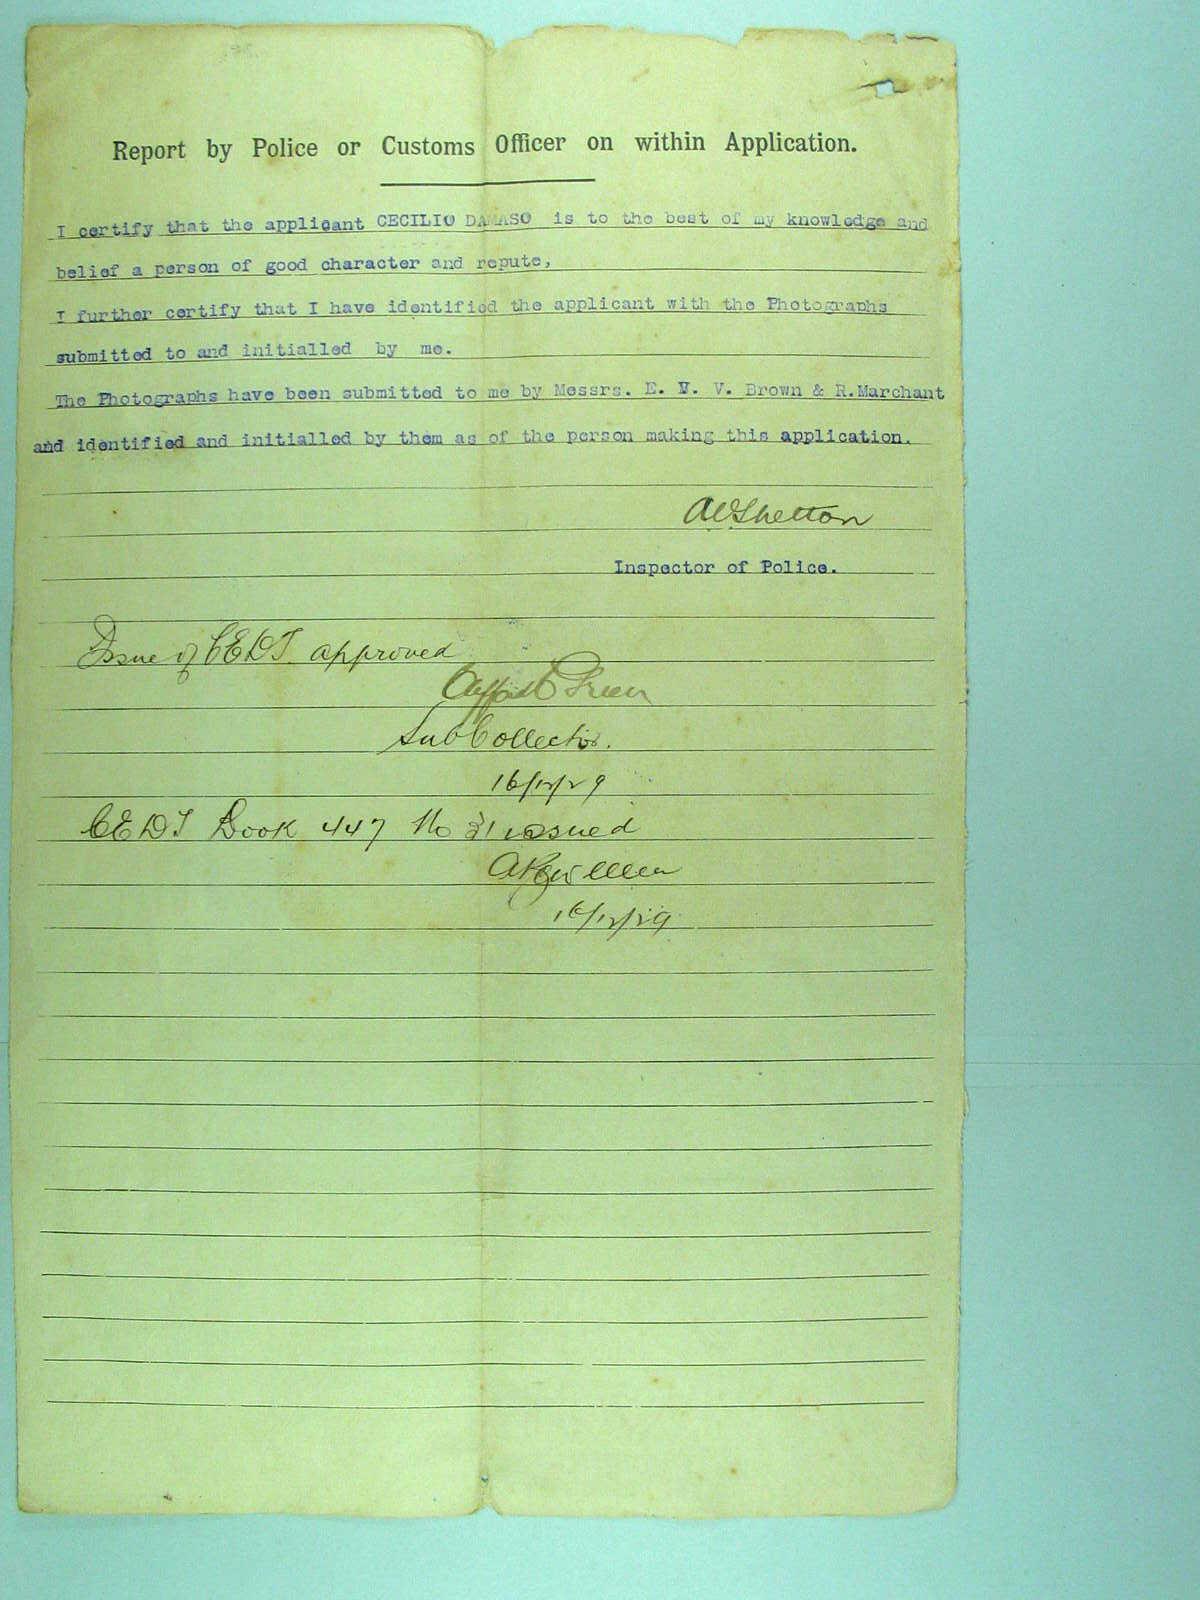 Report by Police or Customs Officer on within Application.
I certify that the applicant CECILIO DAMASO is to the best of my knowledge and
belief a person of good character and repute,
I further certify that I have identified the applicant with the Photographs
submitted to and initialled by me.
The Photographs have been submitted to me by Messrs. E. V. V. Brown & R.Marchant
and identified and initialled by them as of the person making this application.
Inspector of Police.
Issue of CEDT approved
Sub Collector.
16/12/29
CEDT Book 447 No 31 issued
16/12/29